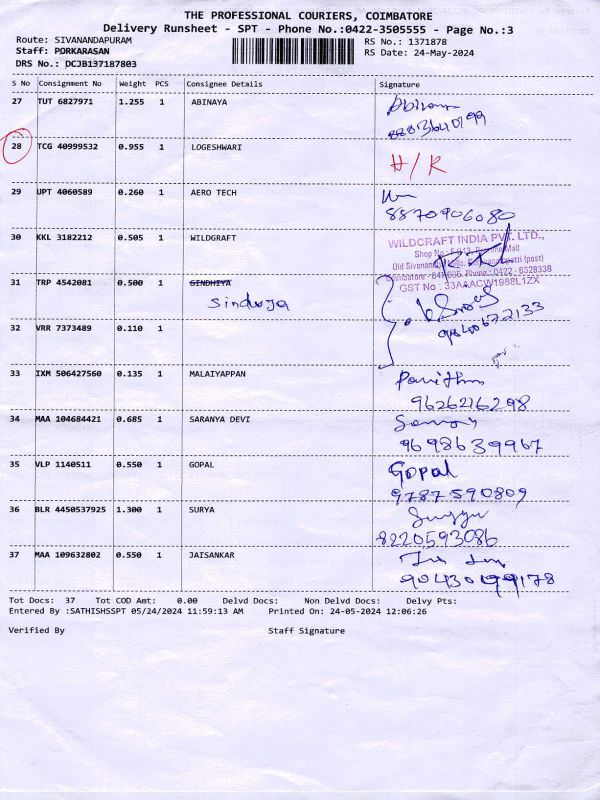 THE PROFESSIONAL COURIERS, COIMBATORE
Delivery Runsheet - SPT - Phone No.:0422-3505555 - Page No.:3
Route: SIVANANDAPURAM
RS No.: 1371878
Staff: PORKARASAN
RS Date: 24-May-2024
DRS No.: DCJB137187803
S No Consignment No Weight PCS Consignee Details Signature
27 TUT 6827971 1.255 1 ABINAYA
28 TCG 40999532 0.955 1 LOGESHWARI H/R
29 UPT 4060589 0.260 1 AERO TECH
8870906080
30 KKL 3182212 0.505 1 WILDGRAFT
WILDCRAFT INDIA PVT. LTD.,
31 TRP 4542081 0.500 1 SINDHIYA
GST No : 33AAACW1988L1ZX
Sinduja
32 VRR 7373489 0.110 1
33 IXM 506427560 0.135 1 MALAIYAPPAN
9626216298
34 MAA 104684421 0.685 1 SARANYA DEVI
9698639967
35 VLP 1140511 0.550 1 GOPAL Gopal
9787590809
36 BLR 4450537925 1.300 1 SURYA
8220593086
37 MAA 109632802 0.550 1 JAISANKAR
Tot Docs: 37 Tot COD Amt: 0.00 Delvd Docs: Non Delvd Docs: Delvy Pts:
Entered By :SATHISHSSPT 05/24/2024 11:59:13 AM Printed On: 24-05-2024 12:06:26
Verified By Staff Signature